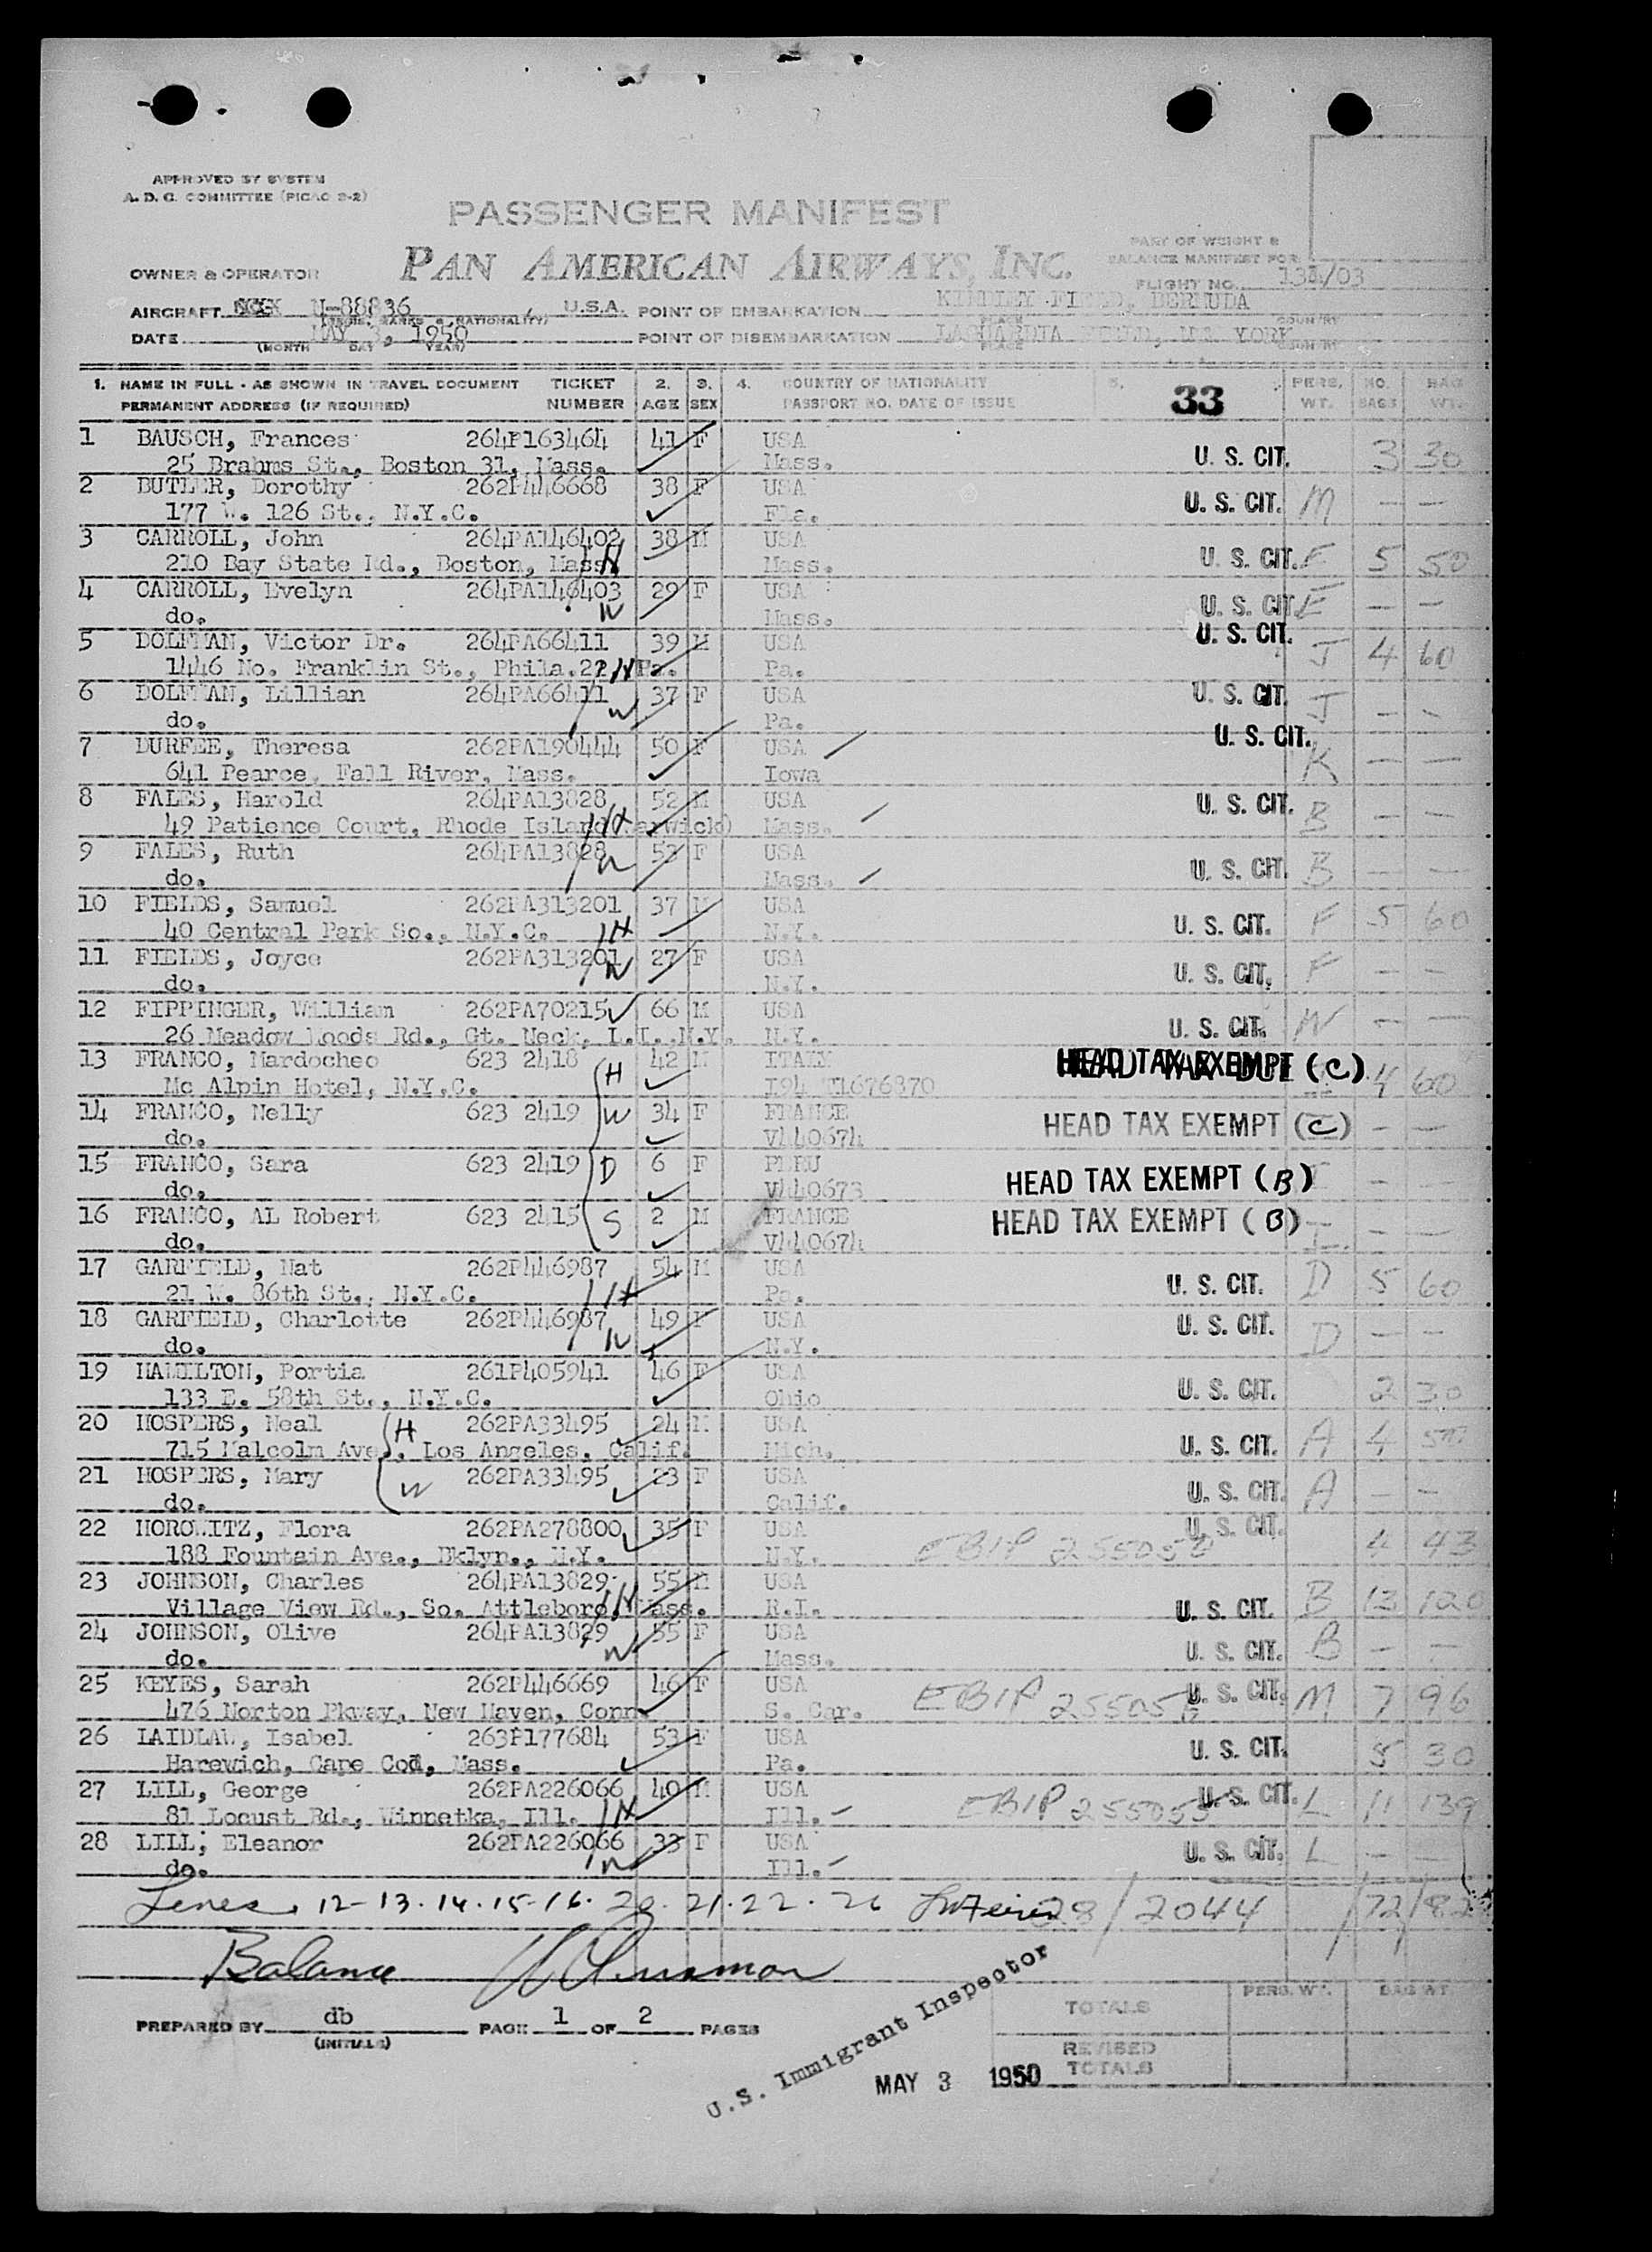 APPROVED BY SYSTEM
A. D. G. COMMITTEE (PICAO 9-2)
PASSENGER MANIFEST
PART OF WEIGHT &
BALANCE MANIFEST FOR
OWNER & OPERATOR PAN AMERICAN AIRWAYS, INC.
FLIGHT NO. 131/03
AIRCRAFT N-88836 U.S.A. POINT OF EMBARKATION KINDLEY FIELD, BERMUDA
(REGIS. MARKS & NATIONALITY) PLACE COUNTRY
DATE MAY 3, 1950 POINT OF DISEMBARKATION LAGUARDIA FIELD, NEW YORK
(MONTH DAY YEAR) PLACE COUNTRY
1. NAME IN FULL - AS SHOWN IN TRAVEL DOCUMENT TICKET 2. 3. 4. COUNTRY OF NATIONALITY 5. 33 PERS. NO. BAG
PERMANENT ADDRESS (IF REQUIRED) NUMBER AGE SEX PASSPORT NO. DATE OF ISSUE WT. BAGS WT.
1 BAUSCH, Frances 264P163464 41 F USA
25 Brahms St., Boston 31, Mass. Mass. U. S. CIT. 3 30
2 BUTLER, Dorothy 262P446668 38 F USA
177 W. 126 St., N.Y.C. Fla. U. S. CIT. M — —
3 CARROLL, John 264PA146402 38 M USA
210 Bay State Rd., Boston, Mass. H Mass. U. S. CIT. E 5 50
4 CARROLL, Evelyn 264PA146403 29 F USA
do. W Mass. U. S. CIT. E — —
5 DOLFMAN, Victor Dr. 264PA66411 39 M USA U. S. CIT.
1446 No. Franklin St., Phila.22 H Pa. Pa. J 4 60
6 DOLFMAN, Lillian 264PA66411 37 F USA U. S. CIT.
do. W Pa. J — —
7 DURFEE, Theresa 262PA190444 50 F USA U. S. CIT.
641 Pearce, Fall River, Mass. Iowa K — —
8 FALES, Harold 264PA13828 52 M USA U. S. CIT.
49 Patience Court, Rhode Island (Warwick) H Mass. B — —
9 FALES, Ruth 264PA13828 53 F USA
do. W Mass. U. S. CIT. B — —
10 FIELDS, Samuel 262PA313201 37 M USA
40 Central Park So., N.Y.C. H N.Y. U. S. CIT. F 5 60
11 FIELDS, Joyce 262PA313201 27 F USA
do. W N.Y. U. S. CIT. F — —
12 FIPPINGER, William 262PA70215 66 M USA
26 Meadow Woods Rd., Gt. Neck, L.I., N.Y. N.Y. U. S. CIT. N — —
13 FRANCO, Mardocheo 623 2418 H 42 M ITALY HEAD TAX EXEMPT (C)
Mc Alpin Hotel, N.Y.C. I94 T1676870 4 60
14 FRANCO, Nelly 623 2419 W 34 F FRANCE HEAD TAX EXEMPT (C)
do. V440674 — —
15 FRANCO, Sara 623 2419 D 6 F PERU HEAD TAX EXEMPT (B)
do. V440673 — —
16 FRANCO, AL Robert 623 2415 S 2 M FRANCE HEAD TAX EXEMPT (B)
do. V440674 I — —
17 GARFIELD, Nat 262P446987 54 M USA
21 W. 86th St., N.Y.C. H Pa. U. S. CIT. D 5 60
18 GARFIELD, Charlotte 262P446987 49 F USA U. S. CIT.
do. W N.Y. D — —
19 HAMILTON, Portia 261P405941 46 F USA
133 E. 58th St., N.Y.C. Ohio U. S. CIT. 2 30
20 HOSPERS, Neal H 262PA33495 24 M USA
715 Malcolm Ave., Los Angeles, Calif. Mich. U. S. CIT. A 4
21 HOSPERS, Mary W 262PA33495 23 F USA
do. Calif. U. S. CIT. A — —
22 HOROWITZ, Flora 262PA278800 35 F USA U. S. CIT.
188 Fountain Ave., Bklyn., N.Y. N.Y. EBIP 255050 4 43
23 JOHNSON, Charles 264PA13829 55 M USA
Village View Rd., So. Attleboro, Mass. H R.I. U. S. CIT. B 13 120
24 JOHNSON, Olive 264PA13829 55 F USA
do. W Mass. U. S. CIT. B — —
25 KEYES, Sarah 262P446669 46 F USA U. S. CIT.
476 Norton Pkway, New Haven, Conn. S. Car. EBIP 25505 M 7 96
26 LAIDLAW, Isabel 263P177684 53 F USA
Harewich, Cape Cod, Mass. Pa. U. S. CIT. 5 30
27 LILL, George 262PA226066 40 M USA U. S. CIT.
81 Locust Rd., Winnetka, Ill. H Ill. EBIP 255055 L 11 139
28 LILL, Eleanor 262PA226066 33 F USA
do. W Ill. U. S. CIT. L — —
Lines 12-13-14-15-16. 20. 21. 22. 26 28/2044 /72/82
Balance
PREPARED BY db PAGE 1 OF 2 PAGES
(INITIALS)
U.S. Immigrant Inspector
MAY 3 1950
PERS. WT. BAG WT.
TOTALS
REVISED
TOTALS